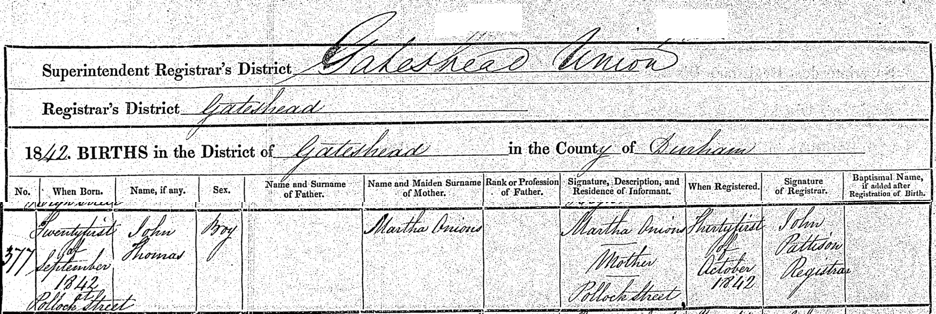 Superintendent Registrar's District Gateshead Union
Registrar's District Gateshead
1842. BIRTHS in the District of Gateshead in the County of Durham
No. When Born. Name, if any. Sex. Name and Surname of Father. Name and Maiden Surname of Mother. Rank or Profession of Father. Signature, Description, and Residence of Informant. When Registered. Signature of Registrar. Baptismal Name, if added after Registration of Birth.
377 Twentyfirst John Boy Martha Onions Martha Onions Thirtyfirst John
of Thomas of Pattison
September Mother October Registrar
1842 1842
Pollock Street Pollock Street